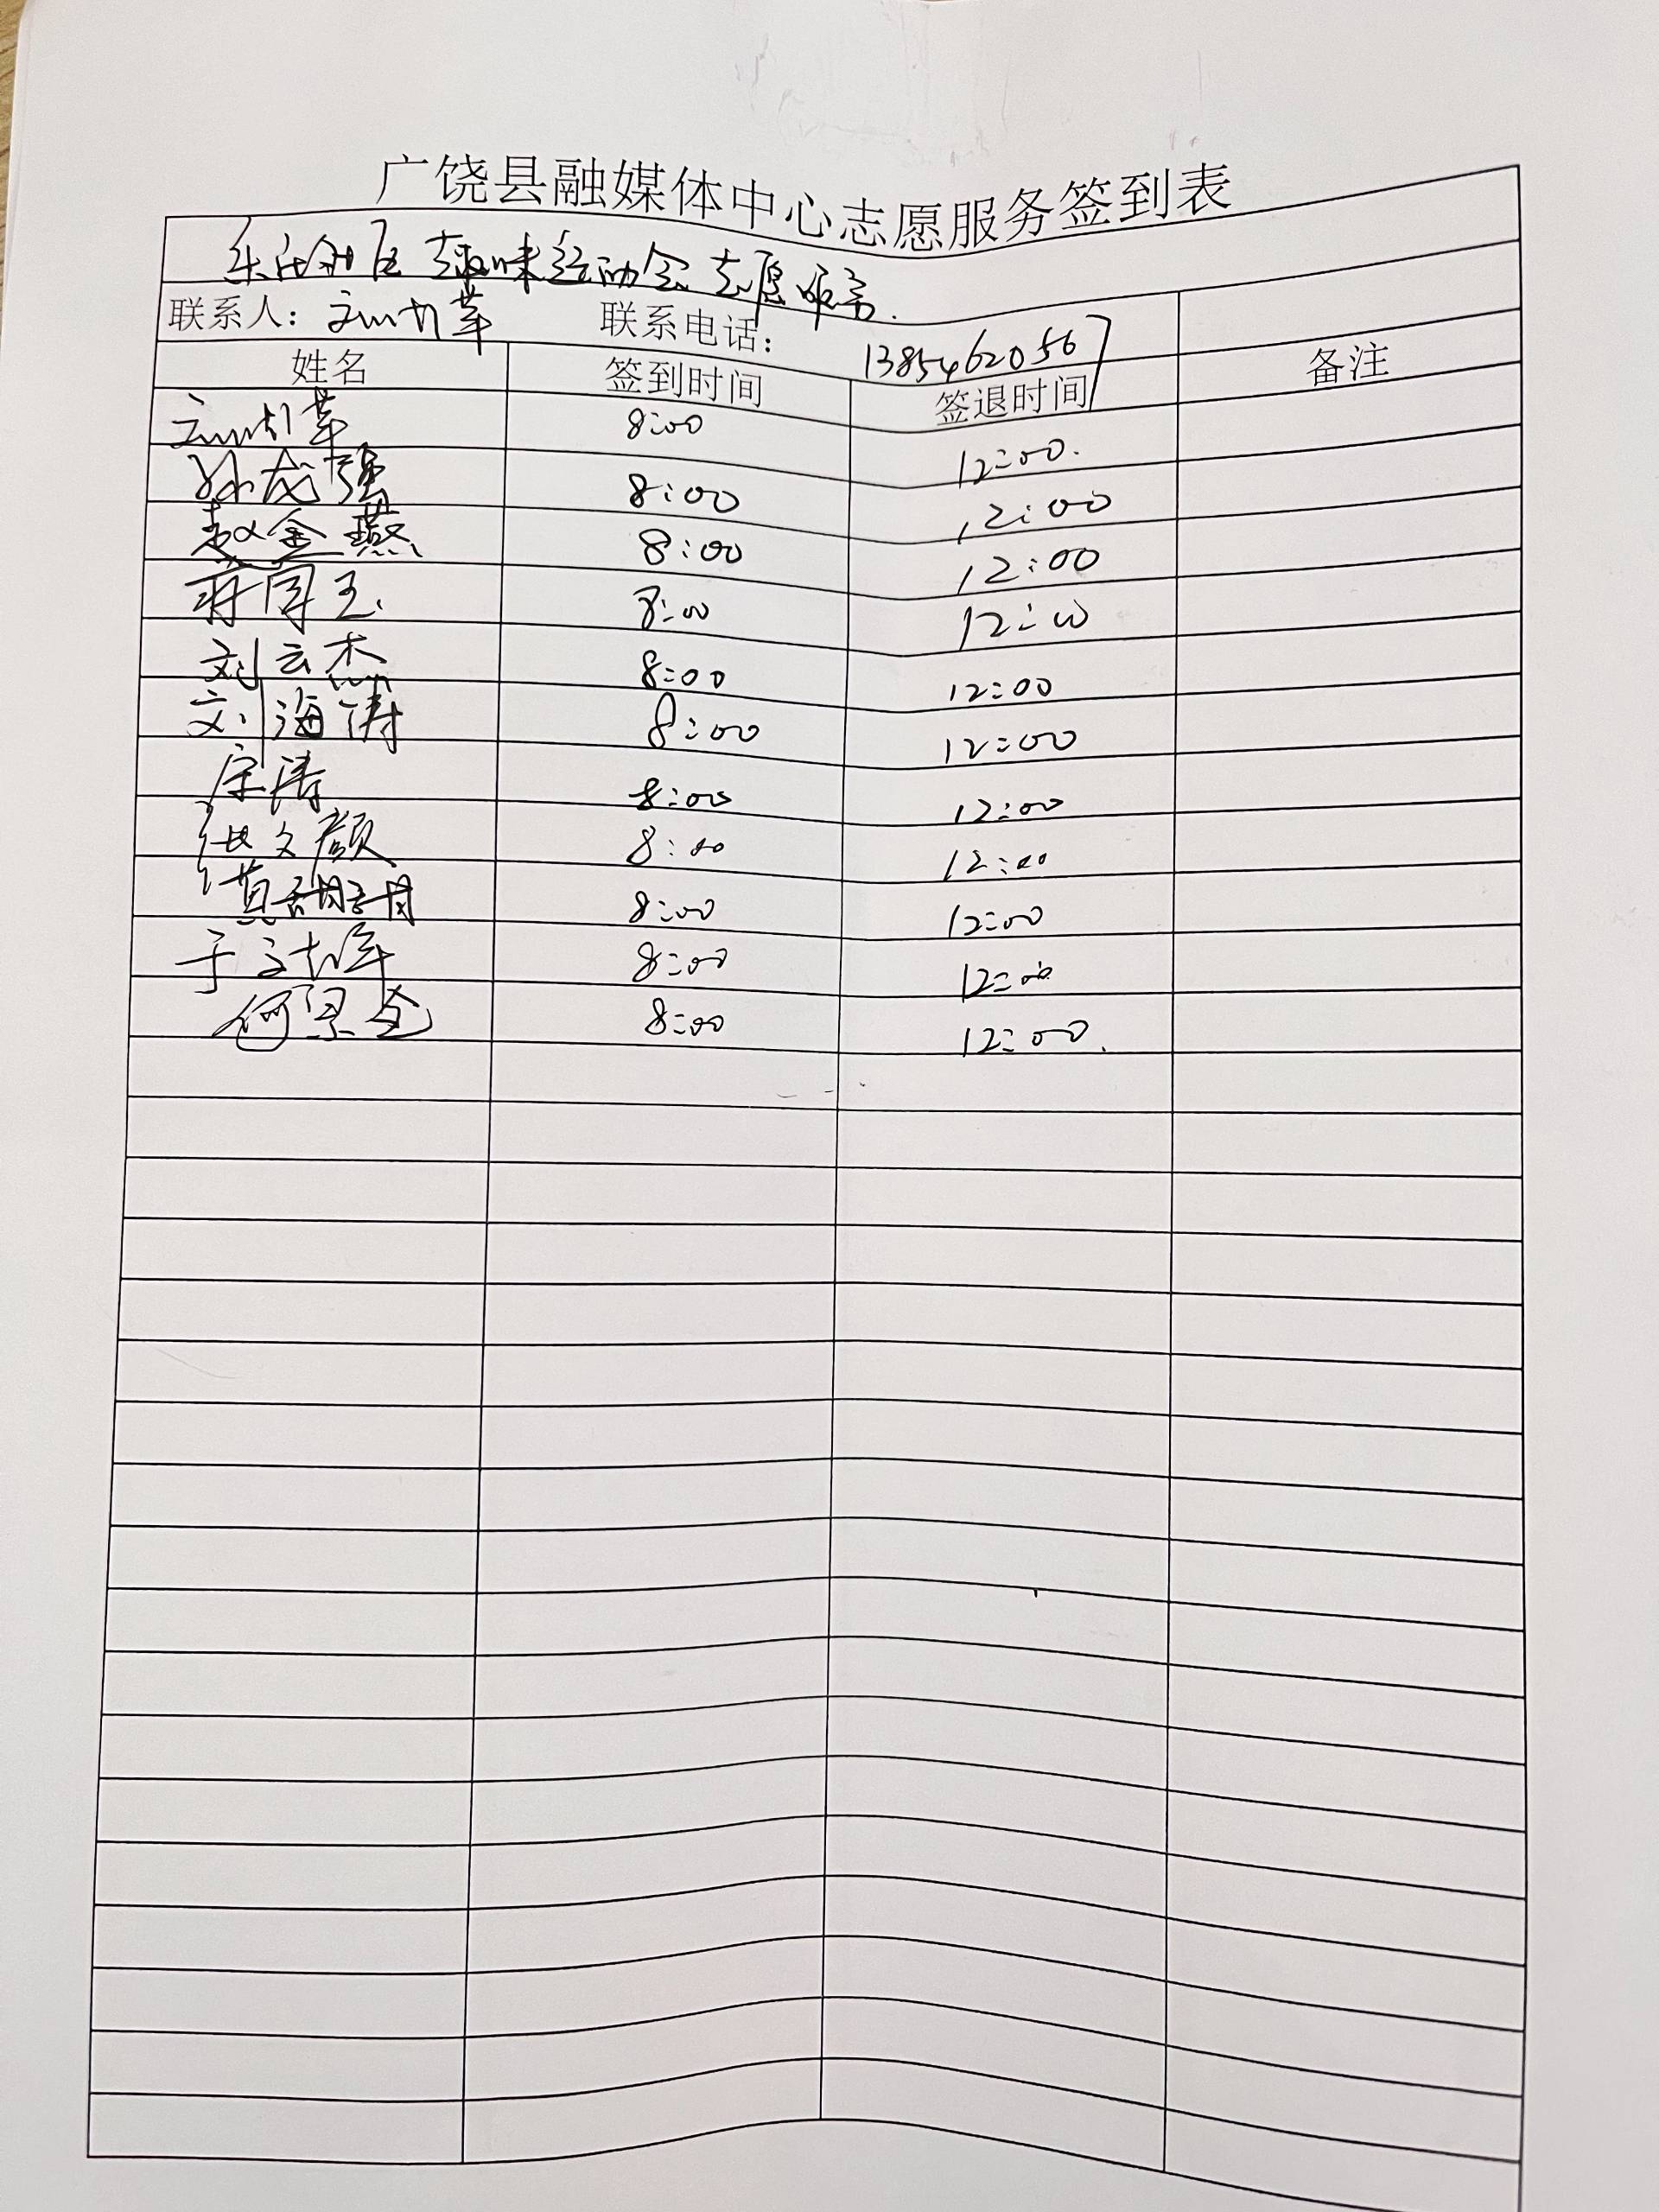 广饶县融媒体中心志愿服务签到表
乐安社区趣味运动会志愿服务.
联系人： 联系电话： 13854620567
姓名 签到时间 签退时间 备注
8:00 12:00.
孙成强 8:00 12:00
赵金燕 8:00 12:00
8:00 12:00
刘云杰 8:00 12:00
刘海涛 8:00 12:00
宋涛 8:00 12:00
文颜 8:00 12:00
黄甜甜 8:00 12:00
于 8:00 12:00
何 8:00 12:00.